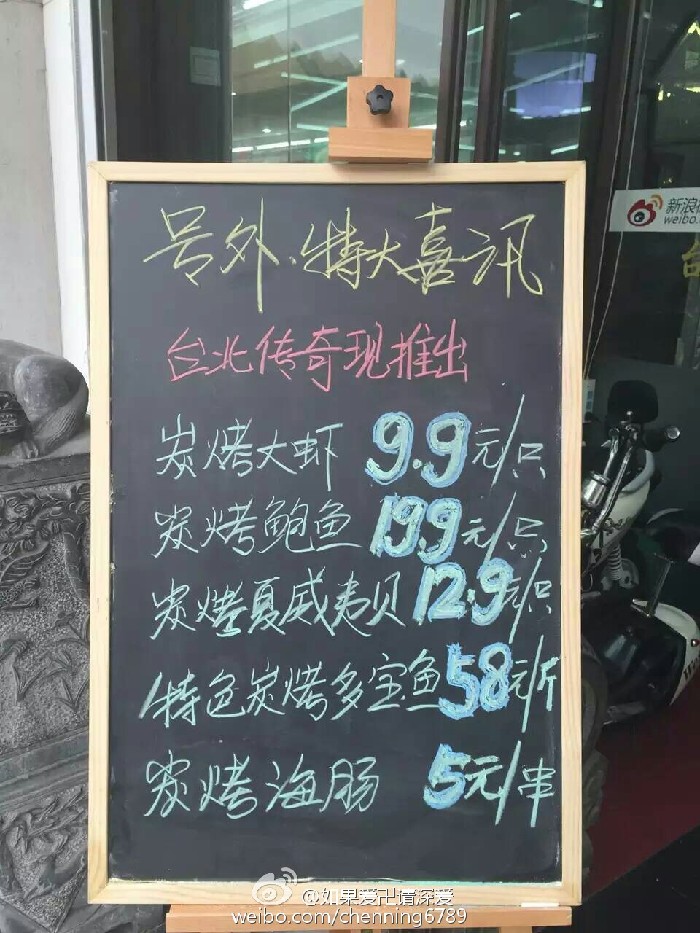 号外、特大喜讯
台北传奇现推出
炭烤大虾 9.9元/只
炭烤鲍鱼 19.9元/只
炭烤夏威夷贝 12.9元/只
特色炭烤多宝鱼 58元/斤
炭烤海肠 5元/串
新浪
weibo.
@如果爱卍请深爱
weibo.com/chenning6789